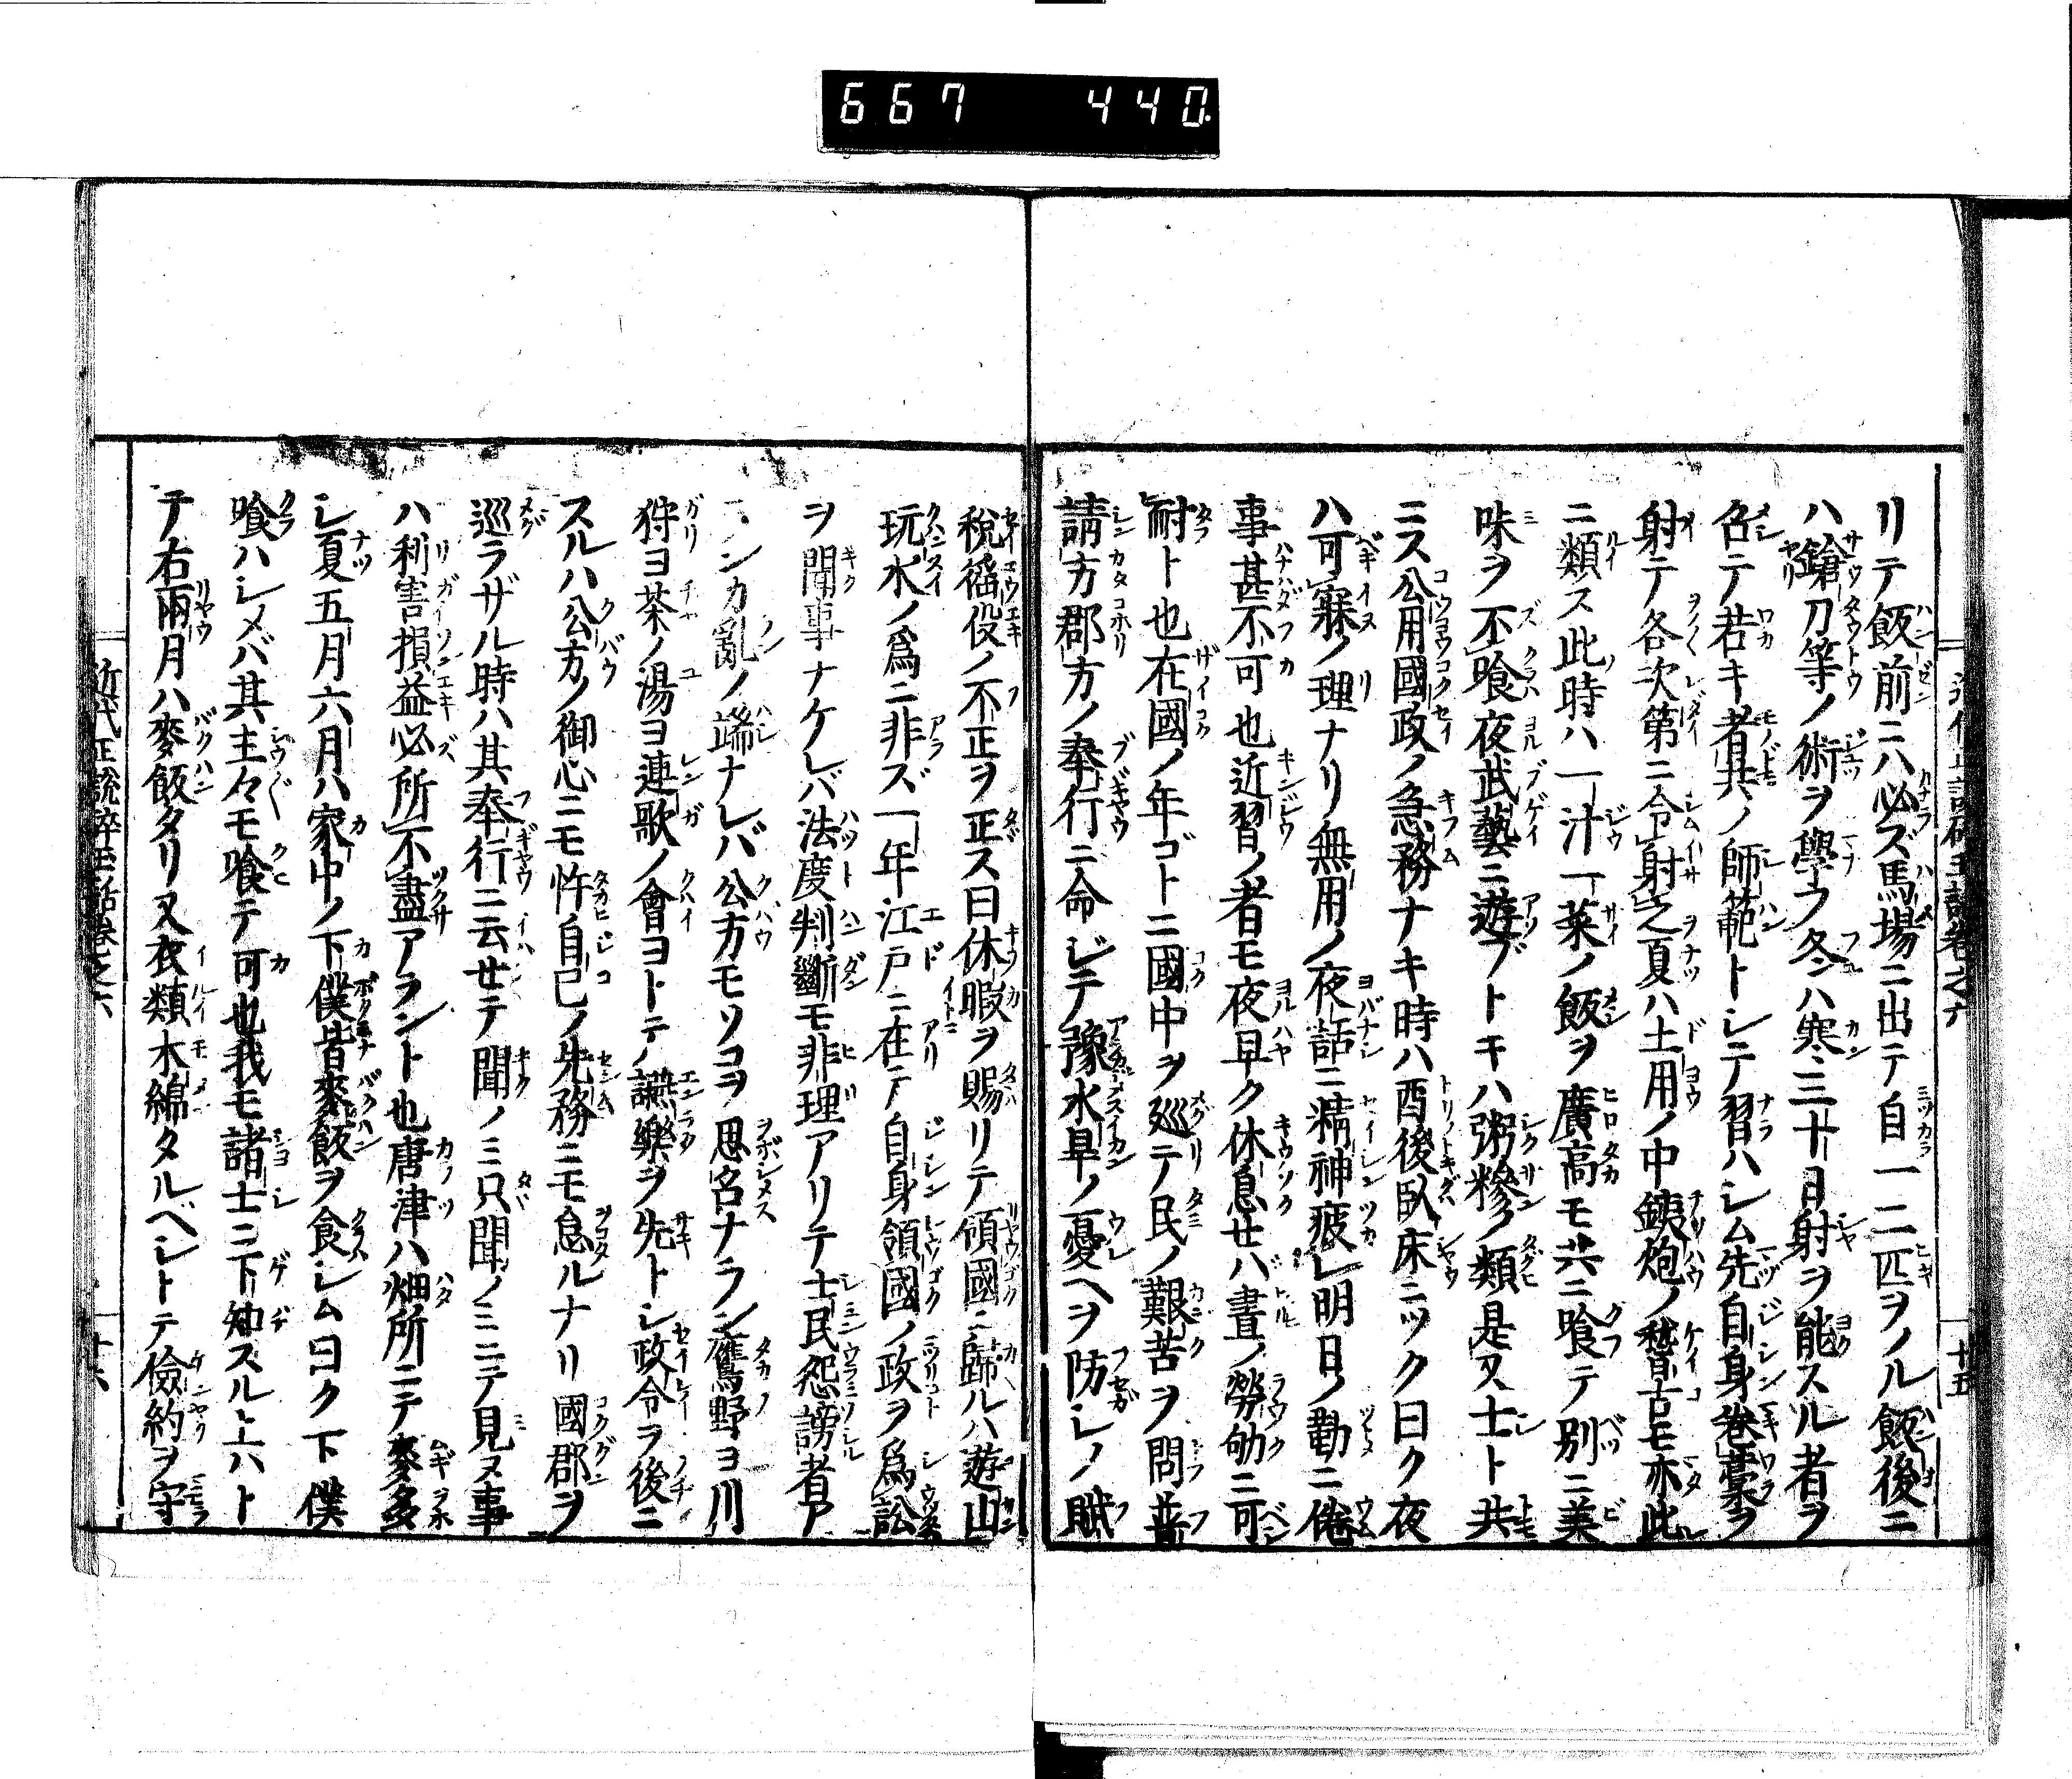 667 440
リテ飯前ニハ必ズ馬場ニ出テ自一二匹ヲノル飯後ニ
ハ鎗刀等ノ術ヲ學フ冬ハ寒三十日射ヲ能スル者ヲ
召テ若キ者共ノ師範トシテ習ハシム先自身卷藁ヲ
射テ各次第ニ令射之夏ハ土用ノ中銕炮ノ稽古モ亦此
ニ類ス此時ハ一汁一菜ノ飯ヲ廣高モ共ニ喰テ別ニ美
味ヲ不喰夜武藝ニ遊ブトキハ粥糝ノ類是又士ト共
ニス公用國政ノ急務ナキ時ハ酉後臥床ニツク曰ク夜
ハ可寐ノ理ナリ無用ノ夜話ニ精神疲レ明日ノ勤ニ倦
事甚不可也近習ノ者モ夜早ク休息せハ晝ノ勞劬ニ可
耐ト也在國ノ年ゴトニ國中ヲ廵テ民ノ艱苦ヲ問普
請方郡方ノ奉行ニ命ジテ豫水旱ノ憂ヘヲ防シノ賦
税徭役ノ不正ヲ正ス曰休暇ヲ賜リテ領國ニ歸ルハ遊山
玩水ノ爲ニ非ズ一年江戸ニ在テ自身領國ノ政ヲ爲訟
ヲ聞事ナケレバ法度判斷モ非理アリテ士民怨謗者ア
ンカ亂ノ端ナレバ公方モソコヲ思召ナラン鷹野ヨ川
狩ヨ茶ノ湯ヨ連歌ノ會ヨトテ讌樂ヲ先トシ政令ヲ後ニ
スルハ公方ノ御心ニモ忤自己ノ先務ニモ怠ルナリ國郡ヲ
巡ラザル時ハ其奉行ニ云せテ聞ノミ只聞ノミニテ見ヌ事
ハ利害損益必所不盡アラント也唐津ハ畑所ニテ麥多
シ夏五月六月ハ家中ノ下僕皆麥飯ヲ食シム曰ク下僕
喰ハシメバ其主々モ喰テ可也我モ諸士ニ下知スル上ハト
テ右兩月ハ麥飯タリ又衣類木綿タルベシトテ儉約ヲ守
近代正説碎玉話卷之六 十六